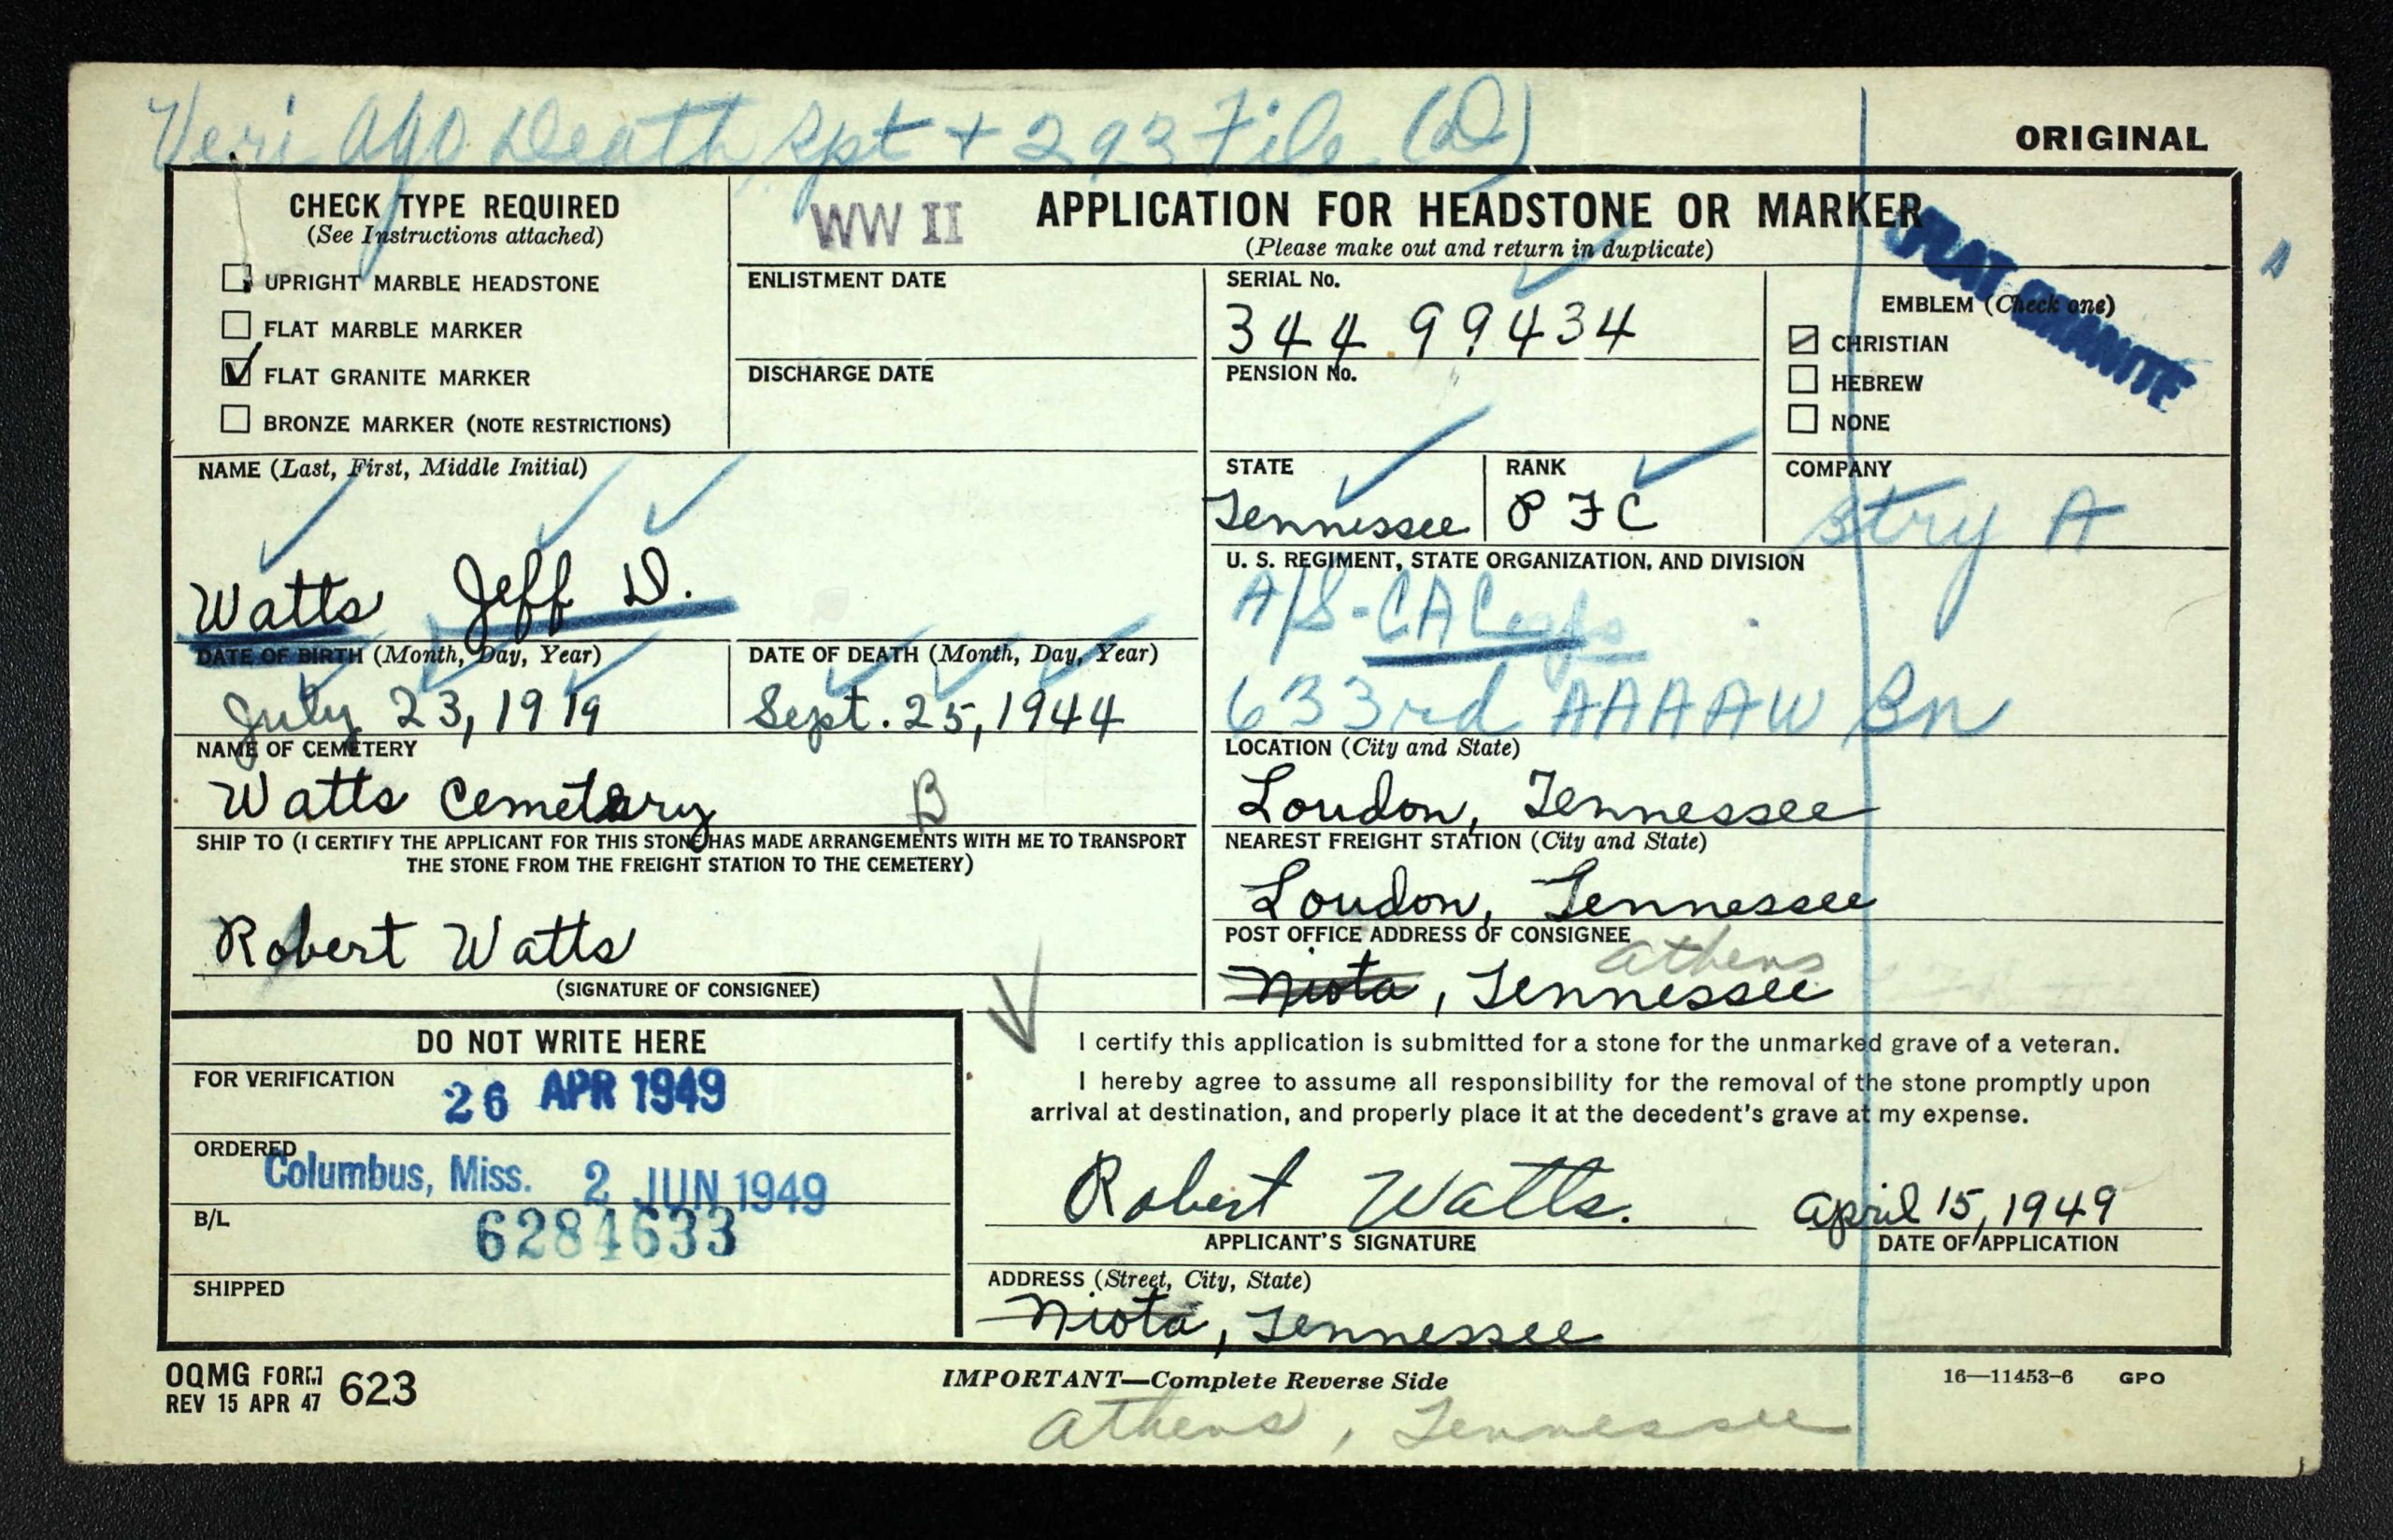 Veri AGO Death Rpt + 293 File (D)
ORIGINAL
CHECK TYPE REQUIRED
(See Instructions attached)
UPRIGHT MARBLE HEADSTONE
FLAT MARBLE MARKER
FLAT GRANITE MARKER
BRONZE MARKER (NOTE RESTRICTIONS)
WW II
APPLICATION FOR HEADSTONE OR MARKER
(Please make out and return in duplicate)
FLAT GRANITE
ENLISTMENT DATE
DISCHARGE DATE
SERIAL No.
344 99434
PENSION No.
EMBLEM (Check one)
CHRISTIAN
HEBREW
NONE
NAME (Last, First, Middle Initial)
Watts Jeff D.
STATE
Tennessee
RANK
PFC
COMPANY
Btry A
U. S. REGIMENT, STATE ORGANIZATION, AND DIVISION
A/S-CA
633rd AAAAW Bn
DATE OF BIRTH (Month, Day, Year)
July 23, 1919
DATE OF DEATH (Month, Day, Year)
Sept. 25, 1944
NAME OF CEMETERY
Watts Cemetery B
LOCATION (City and State)
Loudon, Tennessee
SHIP TO (I CERTIFY THE APPLICANT FOR THIS STONE HAS MADE ARRANGEMENTS WITH ME TO TRANSPORT
THE STONE FROM THE FREIGHT STATION TO THE CEMETERY)
Robert Watts
(SIGNATURE OF CONSIGNEE)
NEAREST FREIGHT STATION (City and State)
Loudon, Tennessee
POST OFFICE ADDRESS OF CONSIGNEE
Athens
Niota, Tennessee
DO NOT WRITE HERE
FOR VERIFICATION
26 APR 1949
ORDERED
Columbus, Miss. 2 JUN 1949
B/L
6284633
SHIPPED
I certify this application is submitted for a stone for the unmarked grave of a veteran.
I hereby agree to assume all responsibility for the removal of the stone promptly upon
arrival at destination, and properly place it at the decedent's grave at my expense.
Robert Watts. April 15, 1949
APPLICANT'S SIGNATURE DATE OF APPLICATION
ADDRESS (Street, City, State)
Niota, Tennessee
OQMG FORM 623
REV 15 APR 47
IMPORTANT—Complete Reverse Side
16—11453-6 GPO
Athens, Tennessee